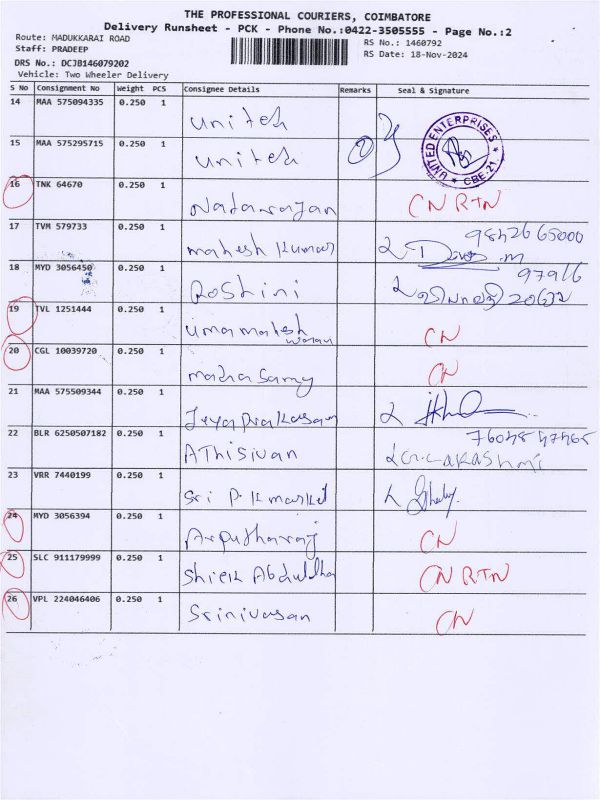 THE PROFESSIONAL COURIERS, COIMBATORE
Delivery Runsheet - PCK - Phone No.:0422-3505555 - Page No.:2
Route: MADUKKARAI ROAD
RS No.: 1460792
Staff: PRADEEP
RS Date: 18-Nov-2024
DRS No.: DCJB146079202
Vehicle: Two Wheeler Delivery
S No Consignment No Weight PCS Consignee Details Remarks Seal & Signature
14 MAA 575094335 0.250 1 United
15 MAA 575295715 0.250 1 United 2 UNITED ENTERPRISES * CBE-21 *
16 TNK 64670 0.250 1 Natarajan CN RTN
17 TVM 579733 0.250 1 mahesh Kumar 9842665000
18 MYD 3056450 0.250 1 Roshini 97916
19 TVL 1251444 0.250 1 umamahesh waran CN
20 CGL 10039720 0.250 1 madhasamy CN
21 MAA 575509344 0.250 1 Jeyaprakasam
22 BLR 6250507182 0.250 1 Athisivan
23 VRR 7440199 0.250 1 Sri P.K market
24 MYD 3056394 0.250 1 Arputharaj CN
25 SLC 911179999 0.250 1 Shiek Abdullha CN RTN
26 VPL 224046406 0.250 1 Srinivasan CN